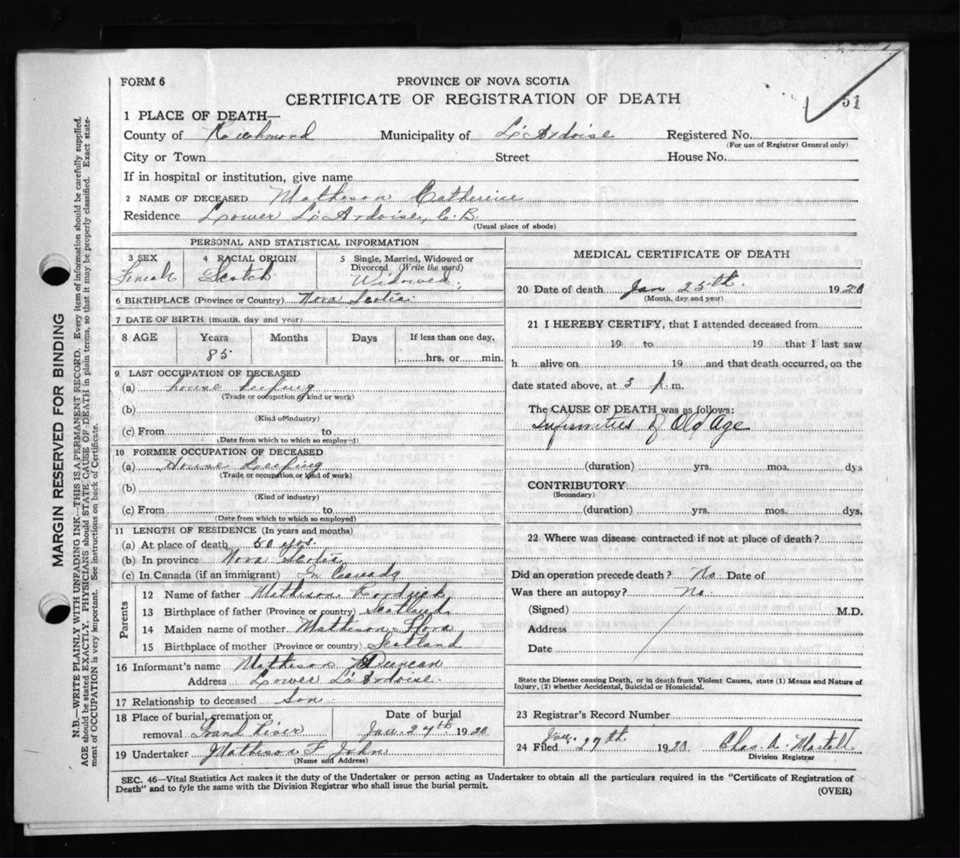 51
FORM 6
PROVINCE OF NOVA SCOTIA
CERTIFICATE OF REGISTRATION OF DEATH
1 PLACE OF DEATH—
County of Richmond Municipality of L'Ardoise Registered No.
(For use of Registrar General only)
City or Town Street House No.
If in hospital or institution, give name
2 NAME OF DECEASED Matheson Catherine
Residence Lower L'Ardoise, C.B.
(Usual place of abode)
PERSONAL AND STATISTICAL INFORMATION
3 SEX 4 RACIAL ORIGIN 5 Single, Married, Widowed or Divorced (Write the word)
Female Scotch Widowed
6 BIRTHPLACE (Province or Country) Nova Scotia
7 DATE OF BIRTH (month, day and year)
8 AGE Years Months Days If less than one day,
85 hrs. or min.
9 LAST OCCUPATION OF DECEASED
(a) House keeping
(Trade or occupation or kind or work)
(b)
(Kind of industry)
(c) From to
(Date from which to which so employed)
10 FORMER OCCUPATION OF DECEASED
(a) House keeping
(Trade or occupation or kind of work)
(b)
(Kind of industry)
(c) From to
(Date from which to which so employed)
11 LENGTH OF RESIDENCE (In years and months)
(a) At place of death 50 yrs.
(b) In province Nova Scotia
(c) In Canada (if an immigrant) In Canada
Parents
12 Name of father Matheson Rordrick
13 Birthplace of father (Province or country) Scotland
14 Maiden name of mother Matheson Flora
15 Birthplace of mother (Province or country) Scotland
16 Informant's name Matheson Duncan
Address Lower L'Ardoise.
17 Relationship to deceased Son
18 Place of burial, cremation or removal Grand River
Date of burial Jan. 27th 1920.
19 Undertaker Matheson F John
(Name and Address)
MEDICAL CERTIFICATE OF DEATH
20 Date of death Jan 25th. 1920
(Month, day and year)
21 I HEREBY CERTIFY, that I attended deceased from
19 to 19 that I last saw
h alive on 19 and that death occurred, on the
date stated above, at 3 p. m.
The CAUSE OF DEATH was as follows:
Infirmities Of Old Age
(duration) yrs. mos. dys
CONTRIBUTORY
(Secondary)
(duration) yrs. mos. dys.
22 Where was disease contracted if not at place of death?
Did an operation precede death? No Date of
Was there an autopsy? No.
(Signed) M.D.
Address
Date
State the Disease causing Death, or in death from Violent Causes, state (1) Means and Nature of
Injury, (2) whether Accidental, Suicidal or Homicidal.
23 Registrar's Record Number
24 Filed Jan. 27th 1920 Chas. A. Martell
Division Registrar
SEC. 46—Vital Statistics Act makes it the duty of the Undertaker or person acting as Undertaker to obtain all the particulars required in the "Certificate of Registration of
Death" and to fyle the same with the Division Registrar who shall issue the burial permit.
(OVER)
MARGIN RESERVED FOR BINDING
N.B.—WRITE PLAINLY WITH UNFADING INK—THIS IS A PERMANENT RECORD. Every item of information should be carefully supplied.
AGE should be stated EXACTLY. PHYSICIANS should STATE CAUSE OF DEATH in plain terms, so that it may be properly classified. Exact state-
ment of OCCUPATION is very important. See instructions on back of Certificate.